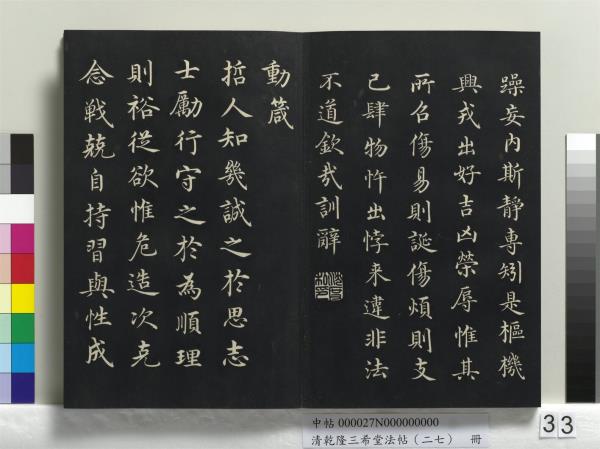 躁妄内斯靜專矧是樞機
興戎出好吉凶榮辱惟其
所召傷易則誕傷煩則支
己肆物忤出悖来違非法
不道欽哉訓辭
動箴
哲人知幾誠之於思志
士勵行守之於為順理
則裕從欲惟危造次克
念戰兢自持習與性成
中帖 000027N000000000
清乾隆三希堂法帖（二七） 冊
33